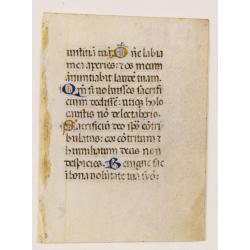 iustitiā tuā. Dñe labia
mea aperies: et os meum
annuntiabit laudē tuam.
Qm̄ si voluisses sacrifi
cium dedissē: utique holo
caustis nō delectaberis.
Sacrificiū deo sp̄s cōtri
bulatus: cor cōtritum et
humiliatum deus non
despicies. Benigne fac
ī bona volūtate tua syō: